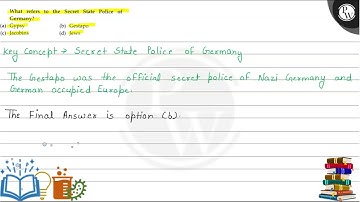 What refers to the Secret State Police of
Germany?
(a) Gypsy (b) Gestapo
(c) Jacobins (d) Jews
Key Concept → Secret State Police of Germany
The Gestapo was the official secret police of Nazi Germany and
German occupied Europe.
The Final Answer is option (b).